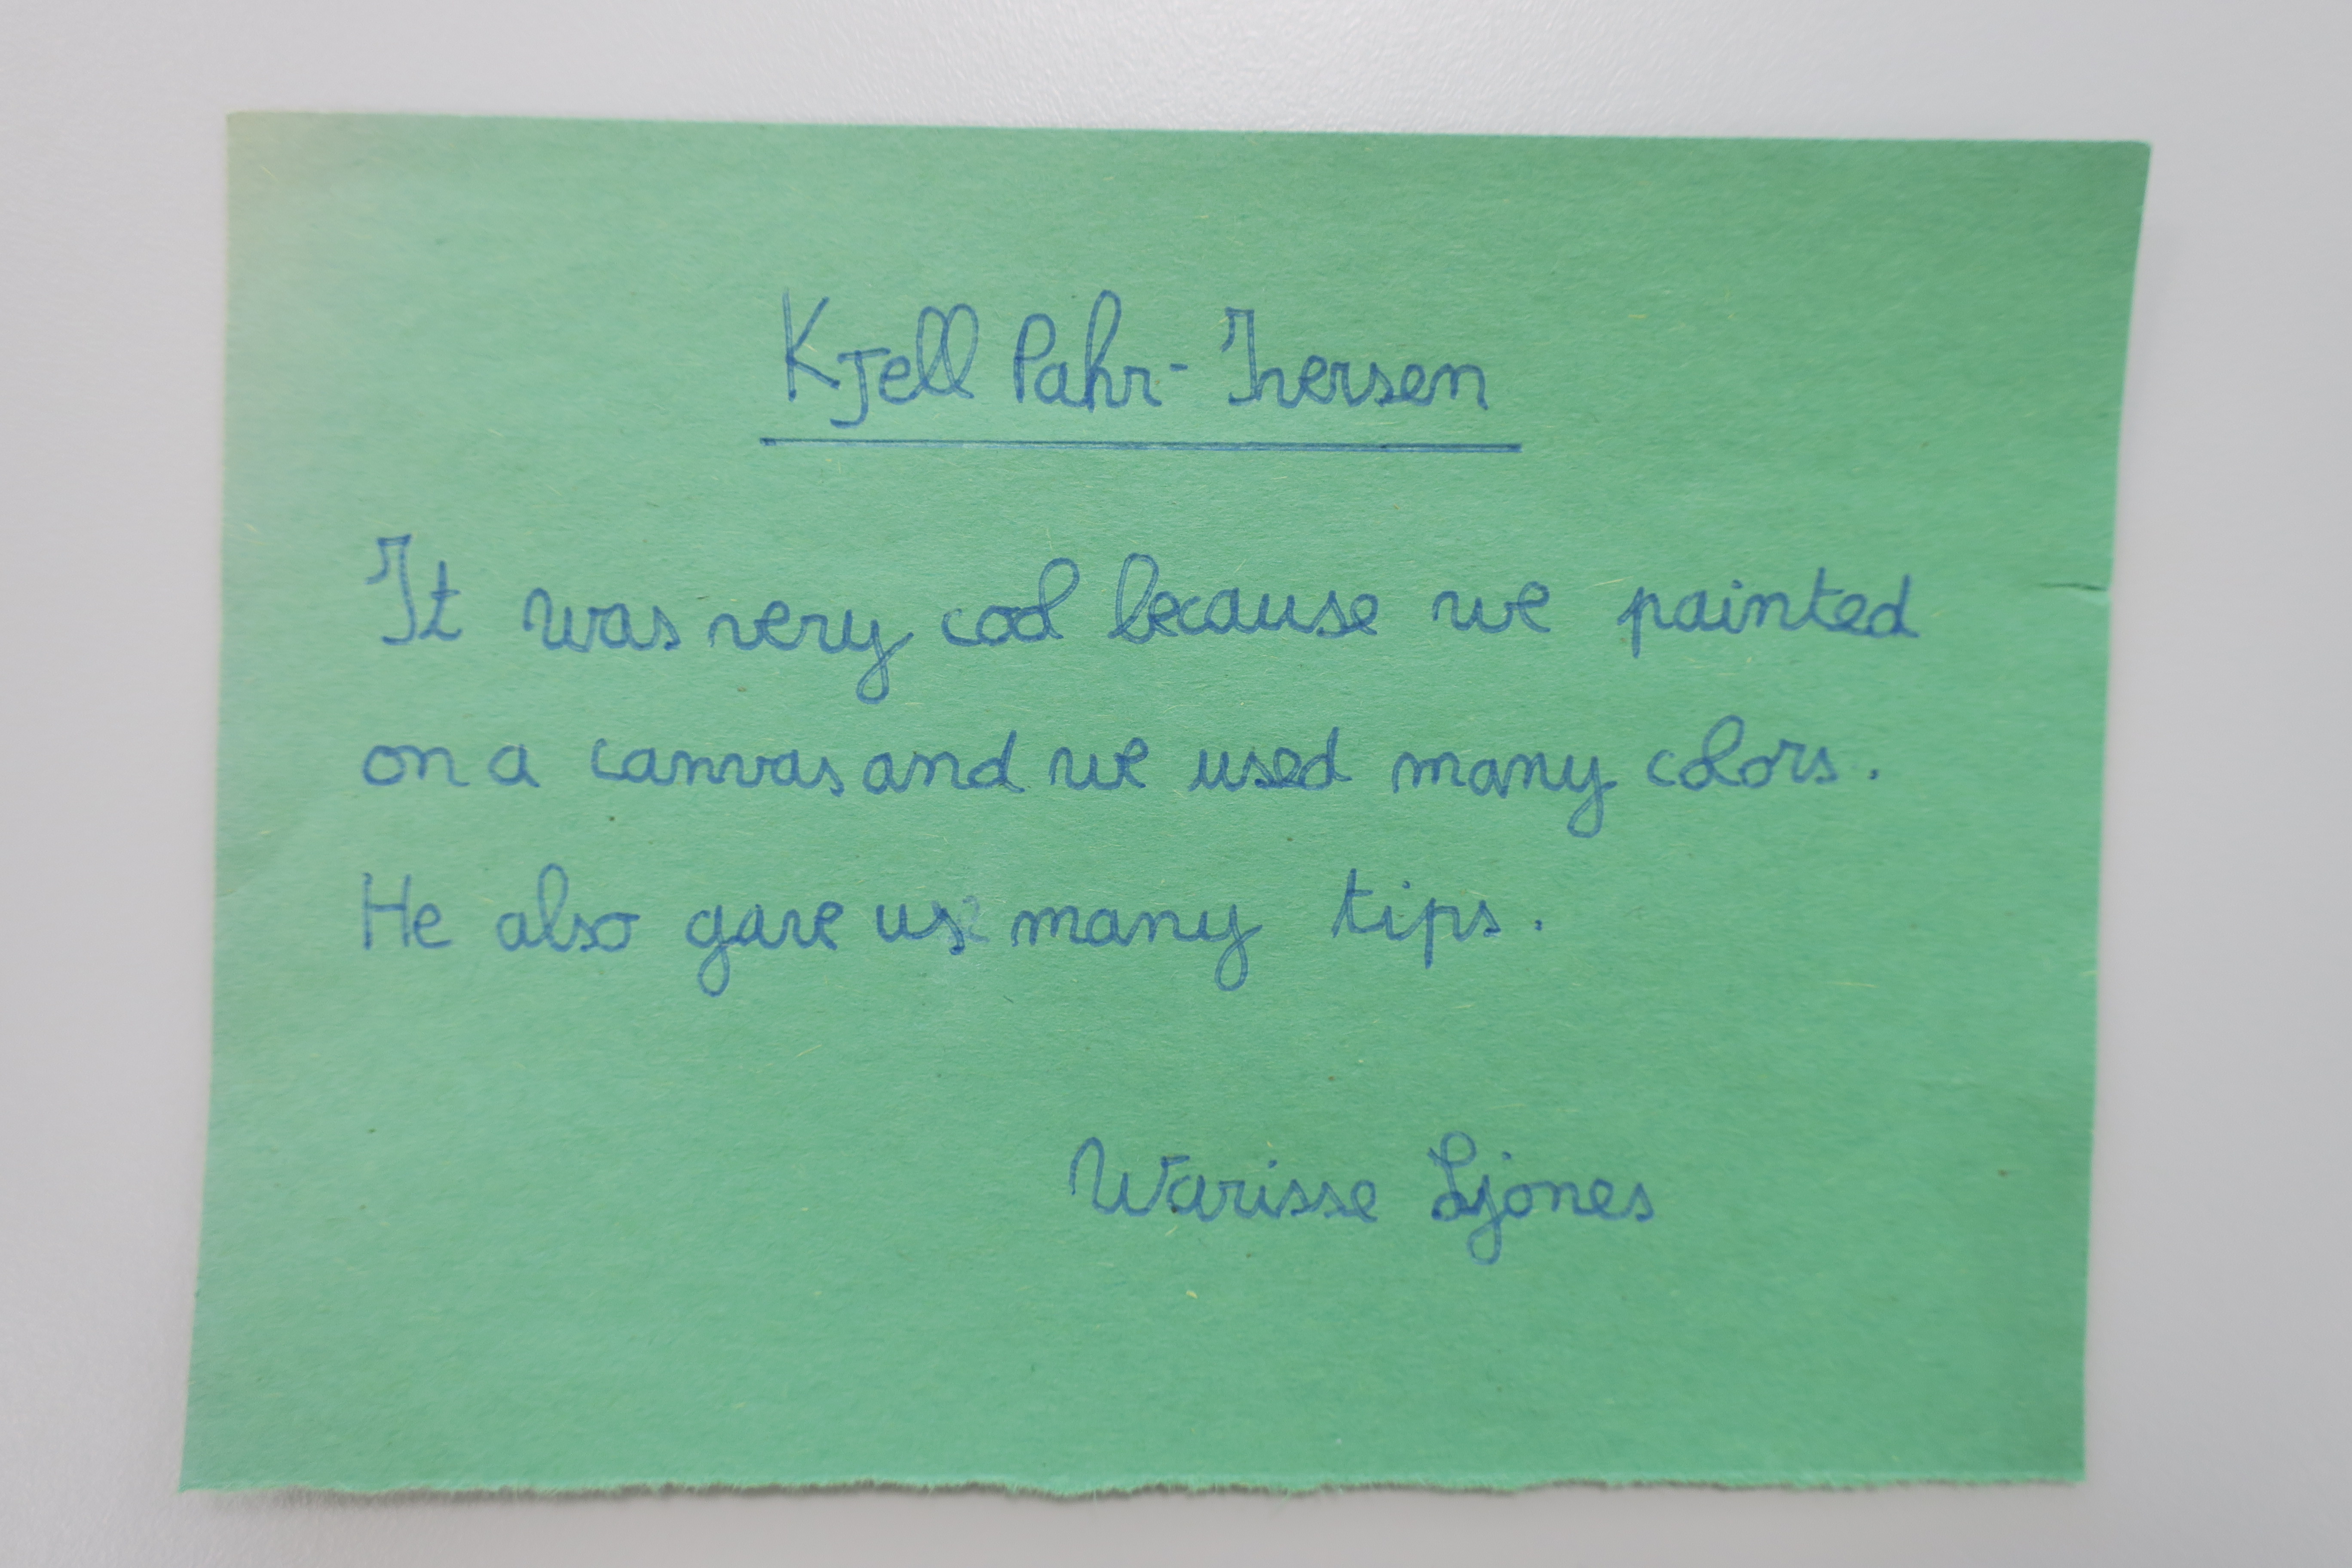 Kjell Pahr-Iversen
It was very cool because we painted
on a canvas and we used many colors.
He also gave us many tips.
Warisse Ljones